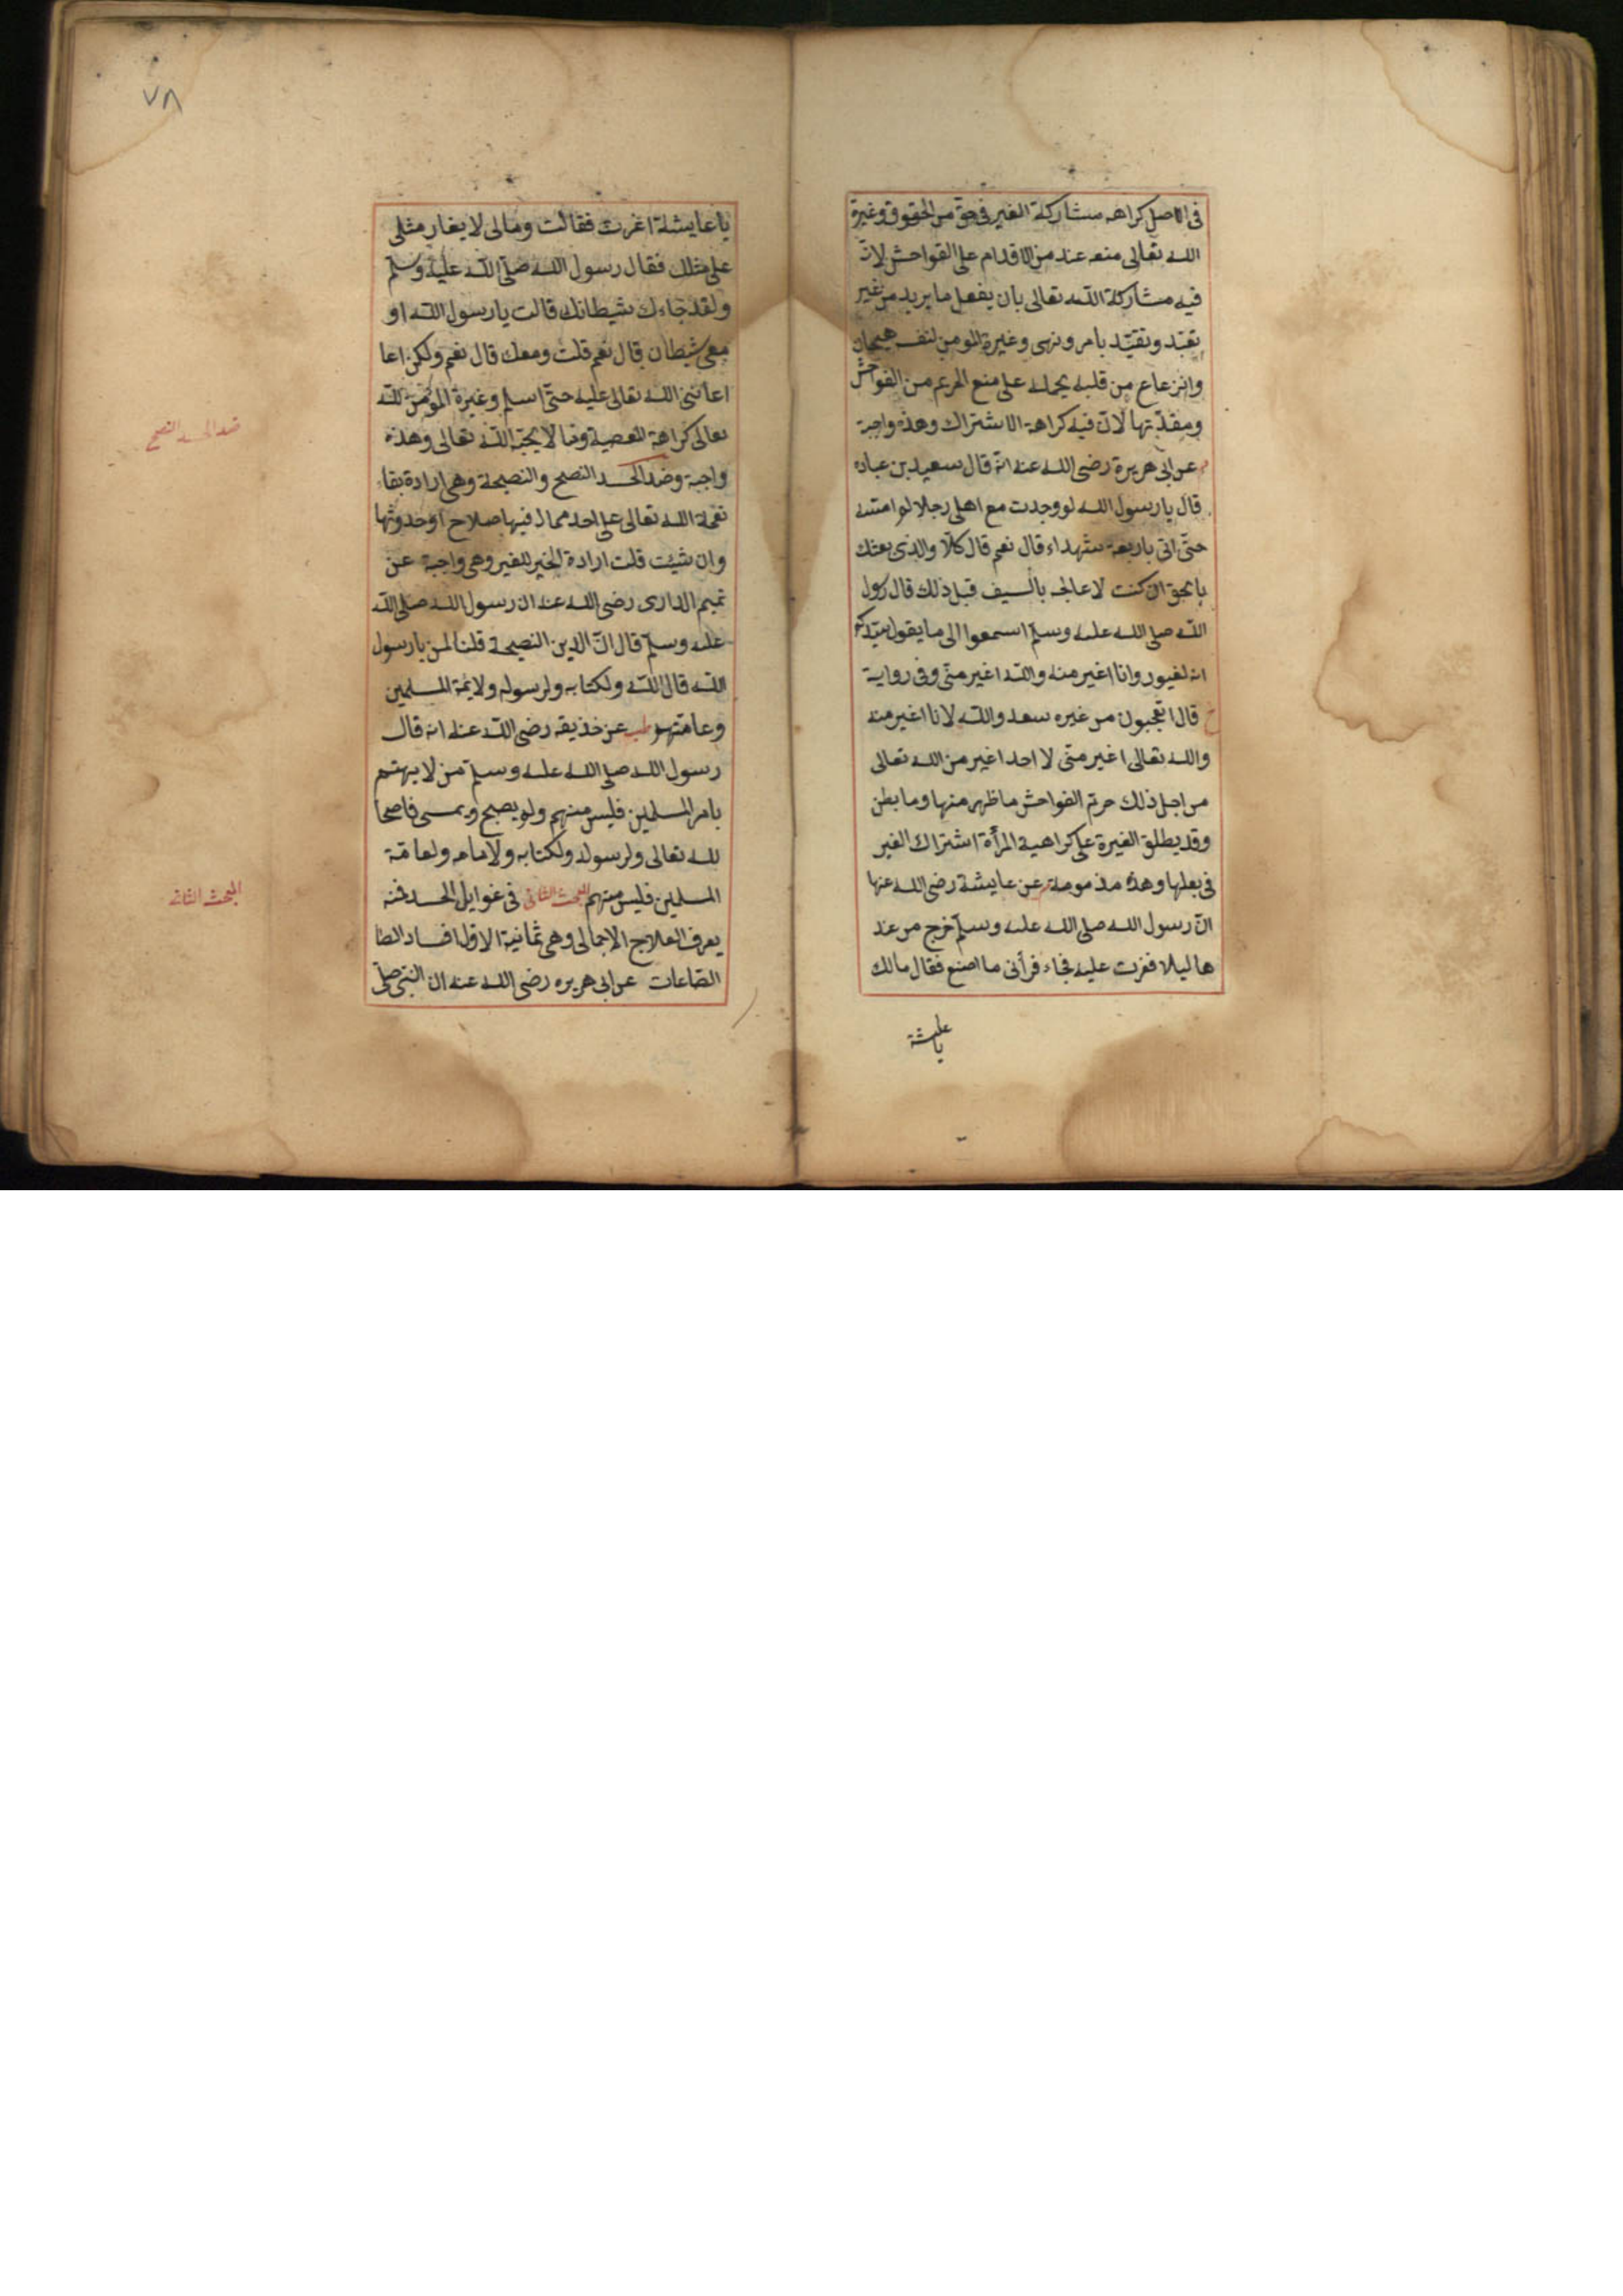 فى الاصل كراهه مشاركة الغير فى حق من الحقوق وغيرة
الله تعالى منعه عنده من الاقدام على الفواحش لان
فيه مشاركة الله تعالى بان يفعل ما يريد من غير
تعبّد وتقيّد بامر ونهى وغيرة المومن لنفسه هيجان
وانزعاع من قلبه يحمله على منع الحريم من الفواحش
ومقدّمتها لان فيه كراهة الاشتراك وهذه واجبة
م عن ابى هريرة رضى الله عنه انه قال سعيد بن عباده
قال يا رسول الله لو وجدت مع اهلى رجلا لم امسّه
حتّى اتى باربعة شهداء قال نعم قال كلّا والذى بعثك
بالحق ان كنت لاعالجه بالسيف قبل ذلك قال رسول
الله صلى الله عليه وسلّم اسمعوا الى ما يقول سيّدكم
انه لغيور وانا اغير منه والله اغير منّى وفى رواية
خ قال اتعجبون من غيره سعد والله لانا اغير منه
والله تعالى اغير منّى لا احد اغير من الله تعالى
من اجل ذلك حرم الفواحش ما ظهر منها وما بطن
وقد يطلق الغيرة على كراهية المرأة اشتراك الغير
فى بعلها وهذه مذمومة م عن عايشة رضى الله عنها
انّ رسول الله صلى الله عليه وسلّم خرج من عند
ها ليلا فغرت عليه فجاء فرأنى ما اصنع فقال مالك
يا عايشة
٧٨
يا عايشة اغرت فقالت ومالى لا يغار مثلى
على مثلك فقال رسول الله صلّى الله عليه وسلّم
ولقد جاءك شيطانك قالت يا رسول الله او
معى شيطان قال نعم قلت ومعك قال نعم ولكن اعا
اعاننى الله تعالى عليه حتّى اسلم وغيرة المؤمن لله
تعالى كراهة المعصية وما لا يحبّه الله تعالى وهذه
واجبة وضد الحسد النصح والنصيحة وهى ارادة بقاء
نعمة الله تعالى على احد مما له فيها صلاح او حدوثها
وان شيئت قلت ارادة الخير للغير وهى واجبة عن
تميم الدارى رضى الله عنه ان رسول الله صلى الله
عليه وسلّم قال انّ الدين النصيحة قلنا لمن يا رسول
الله قال لله ولكتابه ولرسوله ولايمة المسلمين
وعامّتهم طب عن خذيقه رضى الله عنه انه قال
رسول الله صلى الله عليه وسلّم من لا يهتم
بامر المسلمين فليس منهم ولم يصبح ويمسى ناصحا
لله تعالى ولرسوله ولكتابه ولامامه ولعامّة
المسلمين فليس منهم المبحث الثانى فى غوايل الحسد فنه
يعرف العلاج الاجمالى وهى ثمانية الاول افساد الطا
الطاعات عن ابى هريره رضى الله عنه ان النبّى صلّى
ضد الحسد النصح
المبحث الثانى